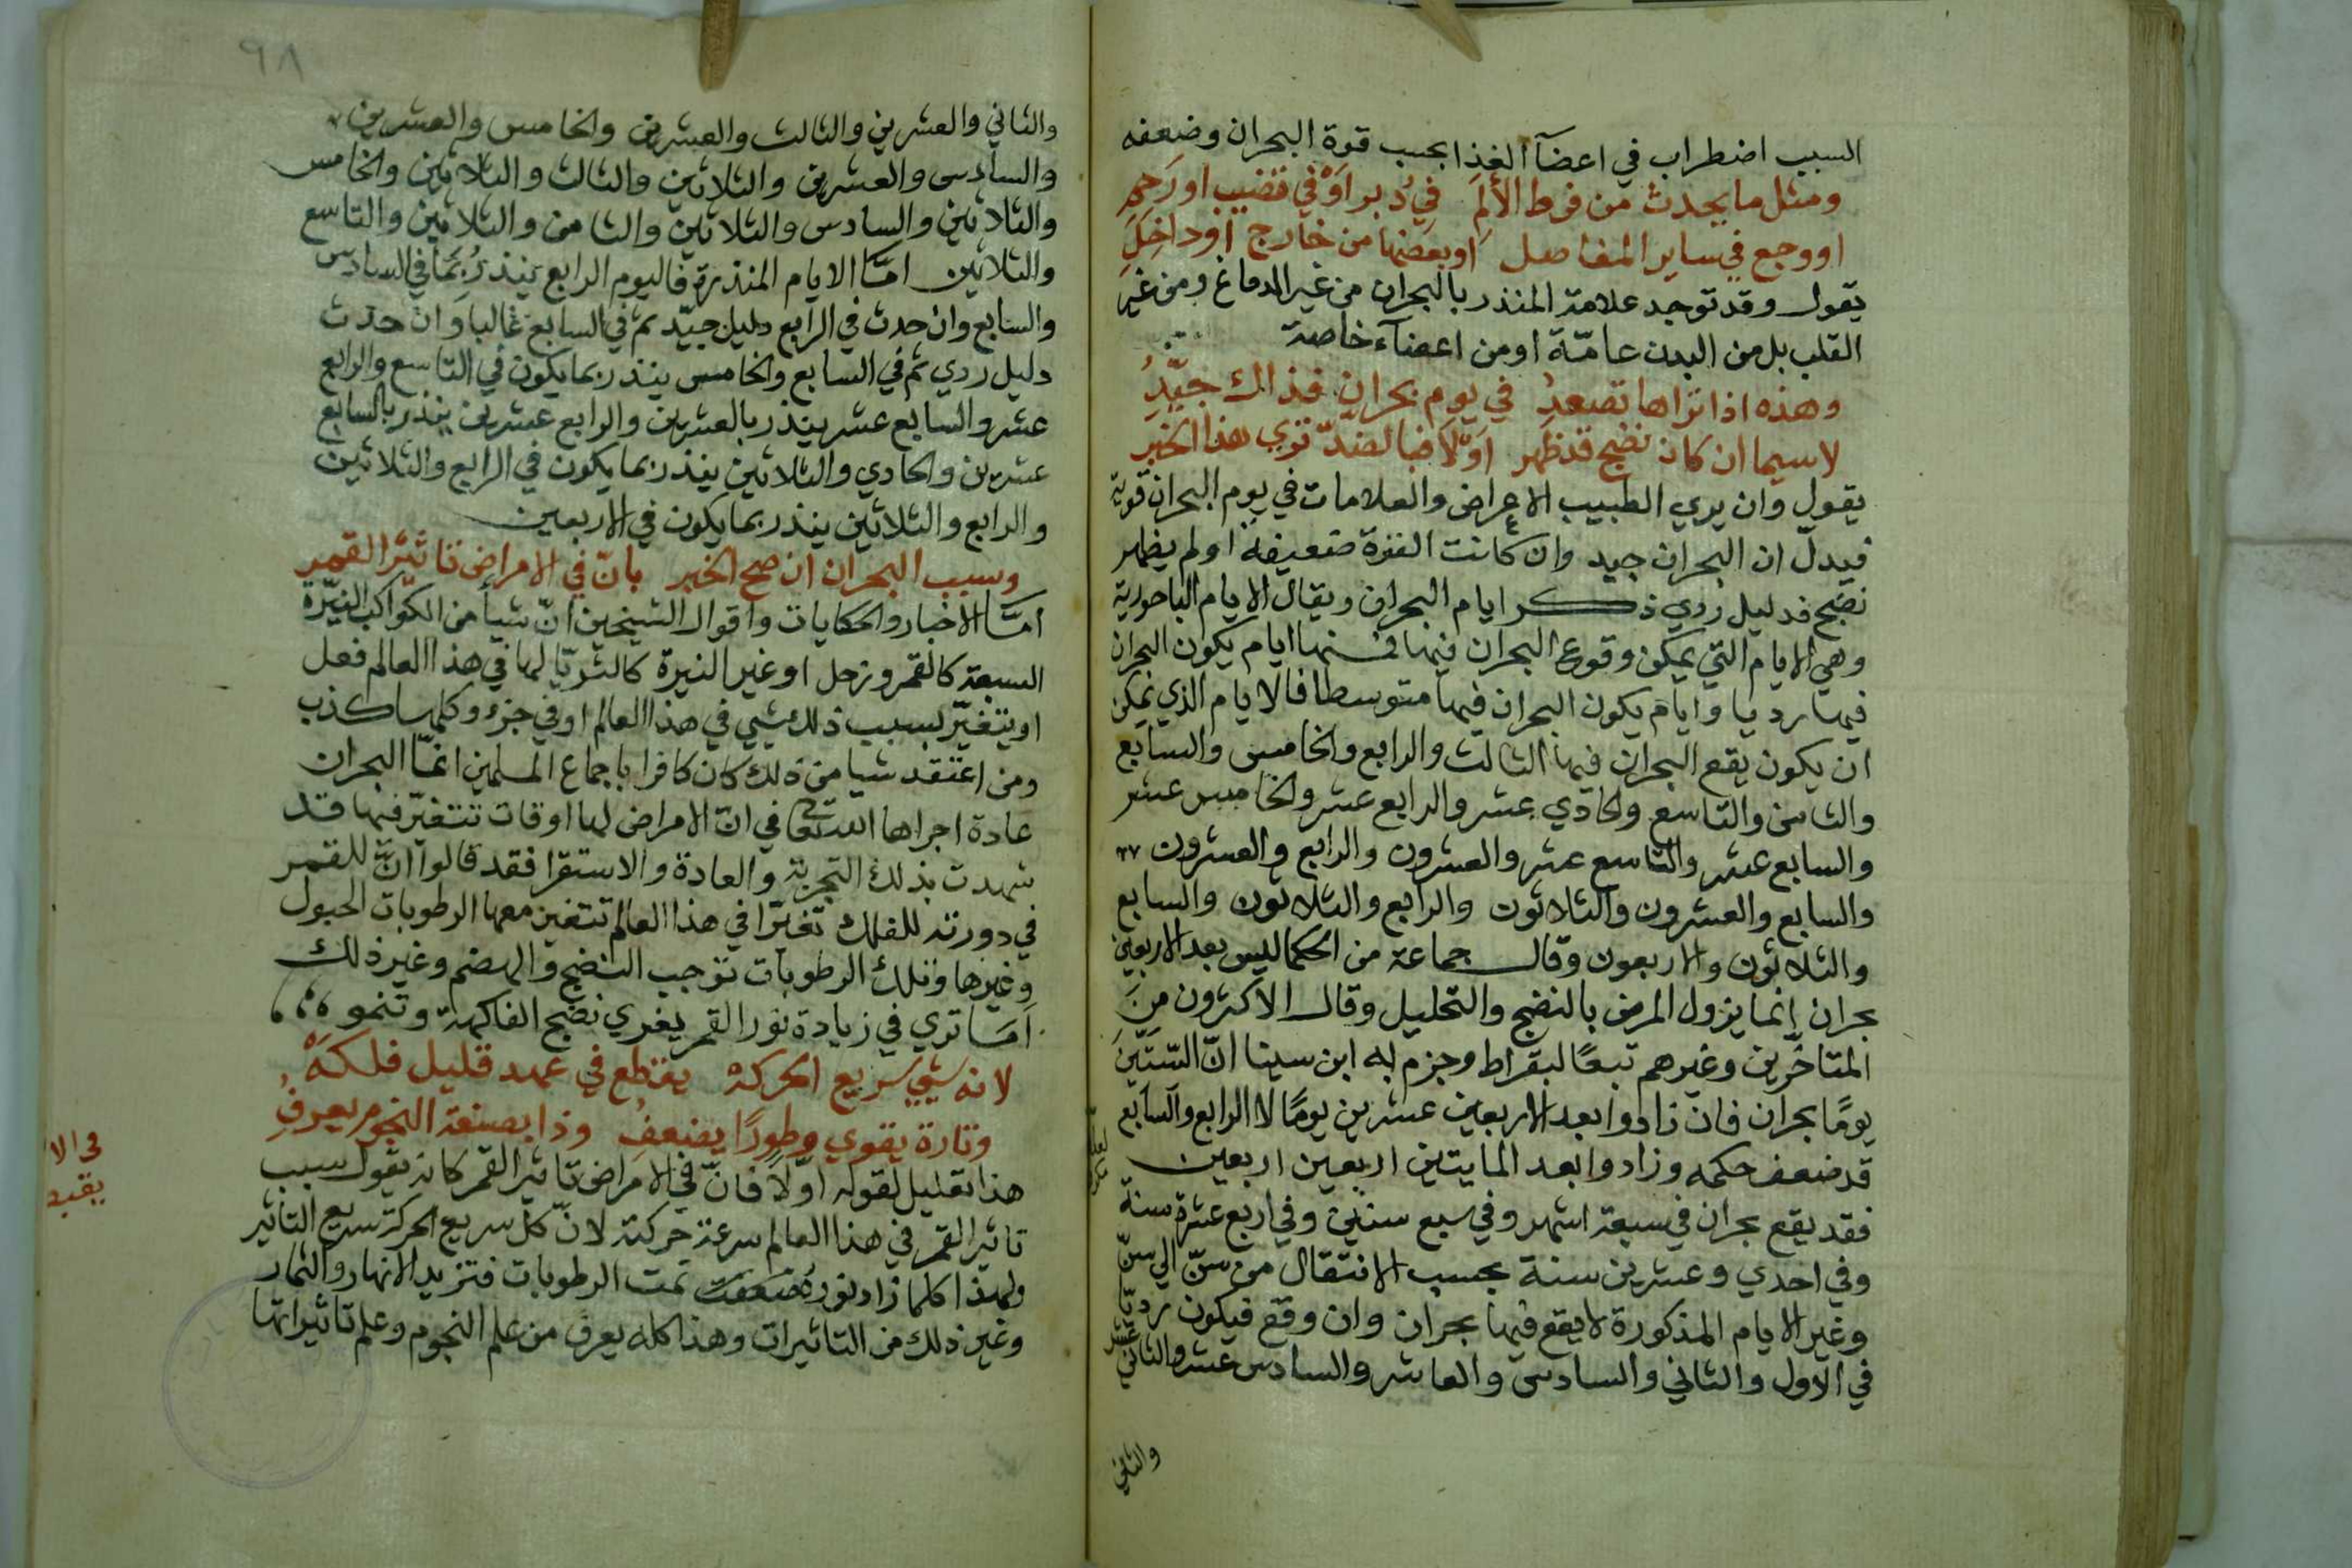 السبب اضطراب في اعضآ الغذا بحسب قوة البحران وضعفه
ومثل ما يحدث من فرط الألمِ في دبر اَوْ في قضيب او رَحِمِ
او وجع في ساير المفاصل او بعضها من خارج او داخِلِ
يقول وقد توجد علامة المنذر بالبحران من غير الدماغ ومن غير
القلب بل من البدن عامّة او من اعضآء خاصة
وهذه اذا تراها تصعدُ في يوم بحران فذاك جيّدُ
لا سيما ان كان نضج قد ظهر اوّلا فبالضدّ تري هذا الخبر
يقول وان يري الطبيب الاعراض والعلامات في يوم البحران قوية
فيدلّ ان البحران جيد وان كانت القوة ضعيفة او لم يظهر
نضج فدليل ردي ذكر ايام البحران ويقال الايام الباحورية
وهي الايام التي يمكن وقوع البحران فيها فمنها ايام يكون البحران
فيها رديا وايام يكون البحران فيها متوسطا فالايام الذي يمكن
ان يكون يقع البحران فيها الثالث والرابع والخامس والسابع
والثامن والتاسع والحادي عشر والرابع عشر والخامس عشر
والسابع عشر والتاسع عشر والعشرون والرابع والعشرون ٢٧
والسابع والعشرون والثلاثون والرابع والثلاثون والسابع
والثلاثون والاربعون وقال جماعة من الحكما ليس بعد الاربعين
بحران إنما يزول المرض بالنضج والتحليل وقال الاكثرون من
المتاخرين وغيرهم تبعًا لبقراط وجزم به ابن سينا انّ الستّين
يومًا بحران فان زادوا بعد الاربعين عشرين يومًا لا الرابع والسابع
قد ضعف حكمه وزادوا بعد المايتين اربعين اربعين
فقد يقع بحران في سبعة اشهر وفي سبع سنين وفي اربع عشرة سنة
وفي احدي وعشرين سنة بحسب الانتقال من سنّ الي سنّ
وغير الايام المذكورة لا يقع فيها بحران وان وقع فيكون رديّا
في الاول والثاني والسادس والعاشر والسادس عشر والثاني عشر
والثاني
٩٨
والثاني والعشرين والثالث والعشرين والخامس والعشرين
والسادس والعشرين والثلاثين والثالث والثلاثين والخامس
والثلاثين والسادس والثلاثين والثامن والثلاثين والتاسع
والثلاثين امّا الايام المنذرة فاليوم الرابع ينذر ربّما في السادس
والسابع وان حدث في الرابع دليل جيّد تم في السابع غالبا وان حدث
دليل ردي تم في السابع والخامس ينذر بما يكون في التاسع والرابع
عشر والسابع عشر ينذر بالعشرين والرابع عشرين ينذر بالسابع
عشرين والحادي والثلاثين ينذر بما يكون في الرابع والثلاثين
والرابع والثلاثين ينذر بما يكون في الاربعين
وسبب البحران ان صح الخبر بانّ في الامراض تاثير القمر
امّا الاخبار والحكايات واقوال الشيخين انّ شيأ من الكواكب النيّرة
السبعة كالقمر وزحل او غير النيرة كالثريّا لها في هذا العالم فعل
او يتغيّر بسبب ذلك شيي في هذا العالم او في جزء وكلها كذب
ومن اعتقد شيا من ذلك كان كافرا باجماع المسلمين انمّا البحران
عادة اجراها الله تعالي في انّ الامراض لها اوقات تتغيّر فيها قد
شهدت بذلك التجربة والعادة والاستقرا فقد قالوا انّ للقمر
في دورته للفلك تغيّرا في هذا العالم تتغير معها الرطوبات الحبول
وغيرها وتلك الرطوبات توجب النضج والهضم وغير ذلك
اَمَا تري في زيادة نور القمر يغري نضج الفاكهة وتنموه
لانه شيي سريع الحركةْ يقطع في عهد قليل فلكهَْ
وتارة يقوي وطورًا يضعفُ وذا بصنعة النجوم يعرفُ
هذا تعليل لقوله اوّلًا فانّ في الامراض تاثير القمر كانه يقول سبب
تاثير القمر في هذا العالم سرعة حركته لانّ كل سريع الحركة سريع التاثير
ولهذا كلما زاد نوره تمت الرطوبات فتزيد الانهار والثمار
وغير ذلك من التاثيرات وهذا كله يعرف من علم النجوم وعلم تاثيراتها